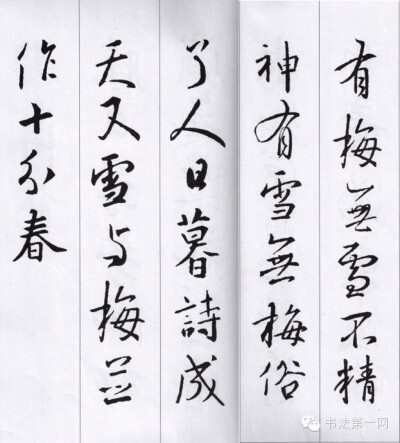 有梅無雪不精
神有雪無梅俗
了人日暮詩成
天又雪与梅並
作十分春
书法第一网